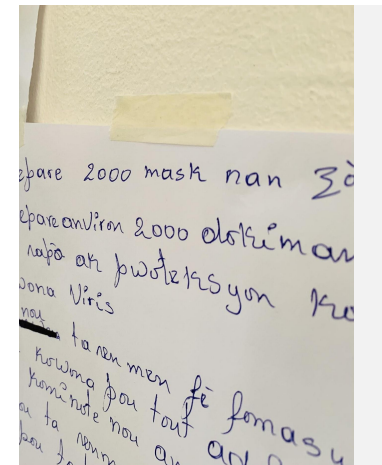 epare 2000 mask nan zò
epare anviron 2000 dokiman
rapò ak pwoteksyon ko
ona Viris
nou ta renmen fè fomasy
kowona pou tout
kominote nou an
ou ta renm
pou